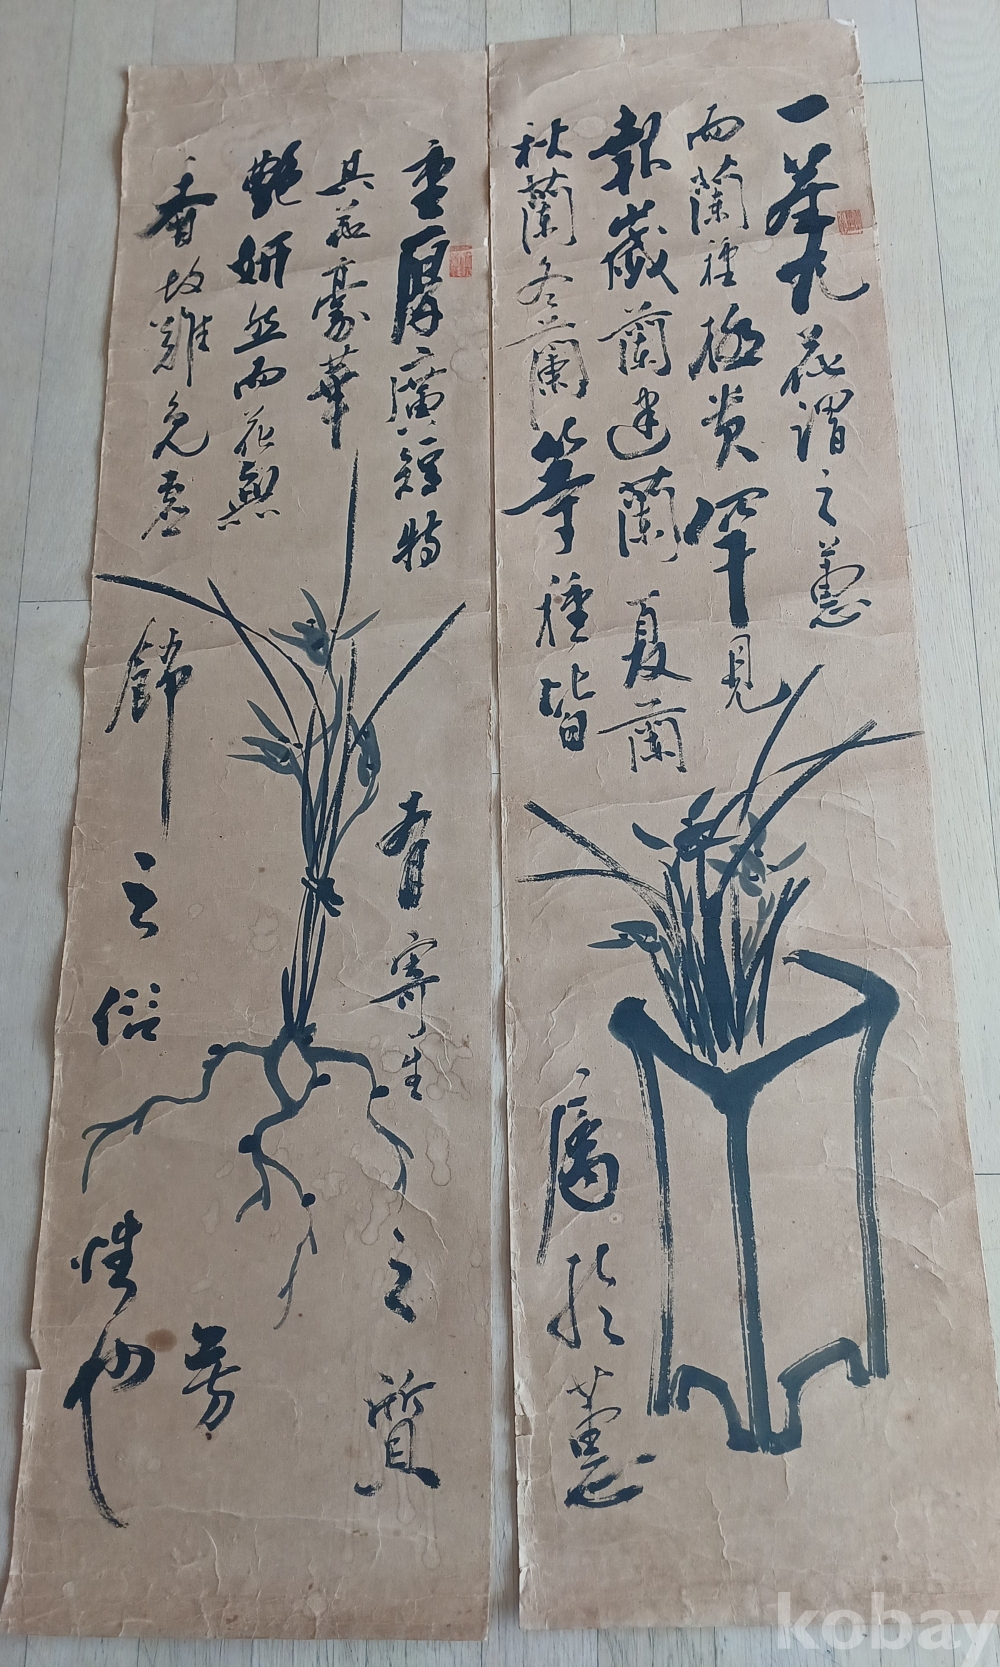 一莖九花謂之蕙
而蘭種極貴罕見
報歲蘭建蘭夏蘭
秋蘭冬蘭等種皆
屬於蕙
重厚廣短特
有寄生之質
其花豪華
艶妍然而花與
芳
香故難免虛
飾之俗性也
kobay